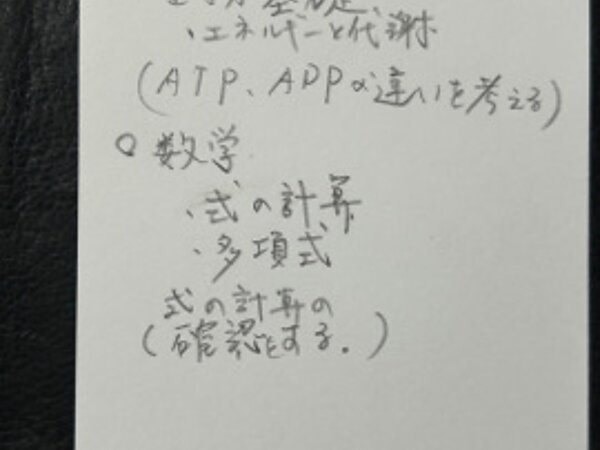 ・エネルギーと代謝
(ATP、ADPの違いを考える)
○ 数学
・式の計算
・多項式
式の計算の
(確認をする。)